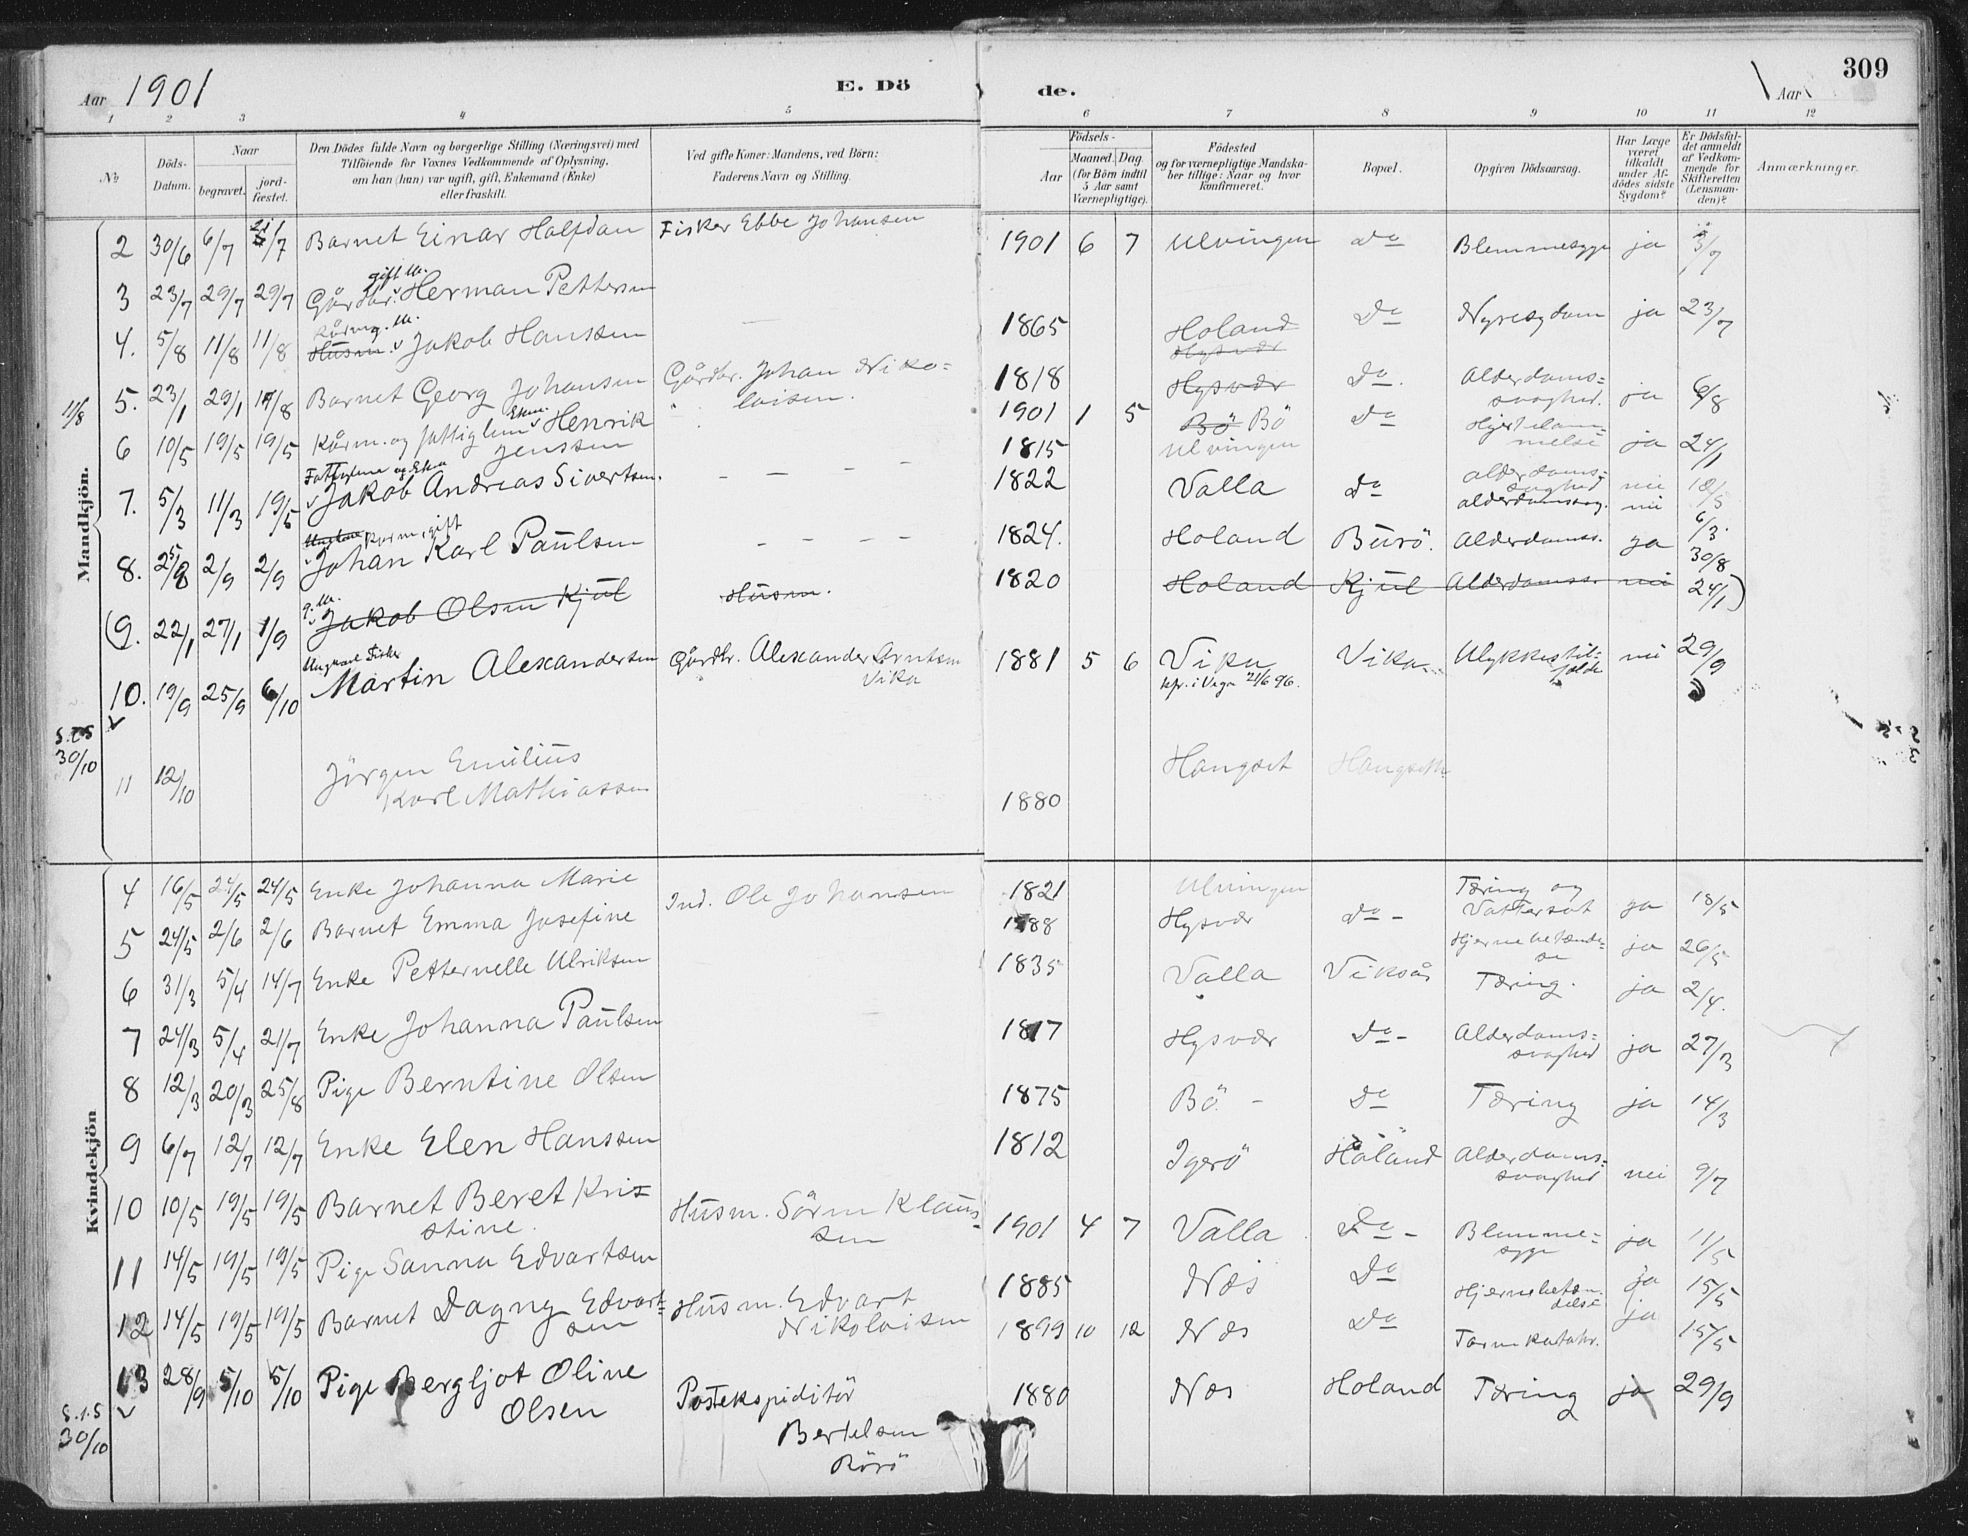 Aar 1901
E. Döde.
309
Aar
1 2 3 4 5 6 7 8 9 10 11 12
No
Döds-Datum.
Naar
begravet.
jord-fæstet.
Den Dödes fulde Navn og borgerlige Stilling (Næringsvei) med
Tilföiende for Voxnes Vedkommende af Oplysning,
om han (hun) var ugift, gift, Enkemand (Enke)
eller fraskilt.
Ved gifte Koner: Mandens, ved Börn:
Faderens Navn og Stilling.
Födsels-
Aar
Maaned. Dag.
(for Börn indtil
5 Aar samt
Værnepligtige).
Födested
og for værnepligtige Mandska-
ber tillige: Naar og hvor
konfirmeret.
Bopæl.
Opgiven Dödsaarsag.
Har Læge
været
tilkaldt
under Af-
dödes sidste
Sygdom?
Er Dödsfal-
det anmeldt
af Vedkom-
mende for
Skifteretten
(Lensman-
den)?
Anmærkninger.
Mandkjön.
2 30/6 6/7 Barnet Einar Halfdan Fisker Ebbe Johansen 1901 6 7 Ulvingen do Blemmesyge ja 3/7
3 23/7 29/7 29/7 Gårdbr. gift M. Herman Pettersen 1865 Holand Hysvær Do Nyresygdom ja 23/7
4. 5/8 11/8 11/8 Husm. Jakob Hanssen 1818 Hysvær Do. Alderdoms=svaghed. ja 6/8
11/8
5. 23/1 29/1 Barnet Georg Johansen Gårdbr. Johan Niko=laisen. 1901 1 5 Bö Bö Do ja 24/1
6 10/5 19/5 19/5 Kårm. og fattiglem Ekm. Henrik Jenssen 1815 Ulvingen alderdoms=svaghed nei 10/5
7. 5/3 11/3 19/5 Jakob Andreas Sivertsen. 1822 Valla do alderdomssvag. nei 6/3.
8. 25/8 2/9 2/9 Kårm, gift Johan Karl Paulsen 1824. Holand Burö. Alderdomss. ja 30/8
(9. 22/1 27/1 1/9 g. M. Jakob Olsen Kjul Husm. 1820 Holand Kjul Alderdomss. nei 24/1)
10. 19/9 25/9 6/10 Ungkarl Fisker Martin Alexandersen Gårdbr. Alexander Arntsen Vika 1881 5 6 Vika kfr. i Vega 21/6 96. Vika Ulykkestil=fælde nei 29/9
30/10
11 12/10 Jörgen Emilius Karl Mathiassen 1880 Hongset Hongseth
Kvindekjön
4 16/5 24/5 24/5 Enke Johanna Marie Ind. Ole Johansen 1821 Ulvingen Tæring og Vattersot ja 18/5
5 24/5 2/6 2/6 Barnet Emma Josefine 1888 Hysvær Do - Hjernebetænde=se ja 26/5
6 31/3 5/4 14/7 Enke Petternelle Ulriksen 1835 Valla Viksås Tæring. ja 2/4.
7 24/3 5/4 21/7 Enke Johanna Paulsen 1817 Hysvær Do - Alderdoms=svaghed ja 27/3
8 12/3 20/3 25/8 Pige Berntine Olsen 1875 Bö. - Do Tæring ja 14/3
9 6/7 12/7 12/7 Enke Elen Hanssen 1812 Igerö Holand Alderdoms=svaghed nei 9/7
10 10/5 19/5 19/5 Barnet Beret Kris=stine. Husm. Sören Klaus=sen 1901 4 7 Valla Do - Blemme=syge ja 11/5
11 14/5 19/5 19/5 Pige Sanna Edvartsen 1885 Næs Do Hjernebetæn=delse ja 15/5
12 14/5 19/5 19/5 Barnet Dagny Edvart=sen Husm. Edvart Nikolaisen 1899 10 12 Næs Do Tarmkatahr. ja 15/5
13 28/9 5/10 5/10 Pige Bergljot Oline Olsen Postekspeditör Bertelsen Rörö 1880 Næs Holand Tæring ja 29/9
30/10